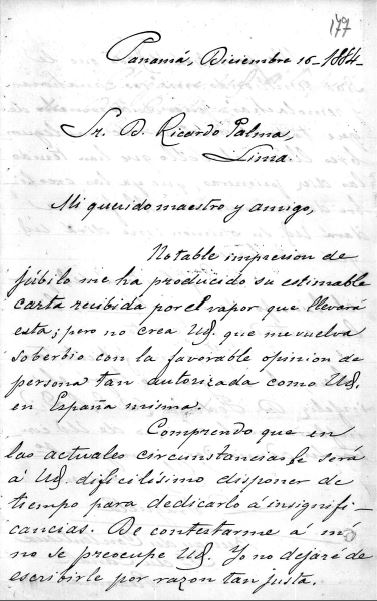 177
Panamá, Diciembre 16-1884-
Sr. D. Ricardo Palma,
Lima.
Mi querido maestro y amigo,
Notable impresion de
júbilo me ha producido su estimable
carta recibida por el vapor que llevará
esta; pero no crea Ud. que me vuelva
soberbio con la favorable opinion de
persona tan autorizada como Ud.
en España misma.
Comprendo que en
las actuales circunstancias le será
á Ud. dificilísimo disponer de
tiempo para dedicarlo á insignifi-
cancias. De contestarme á mí
no se preocupe Ud. Yo no dejaré de
escribirle por razon tan justa.